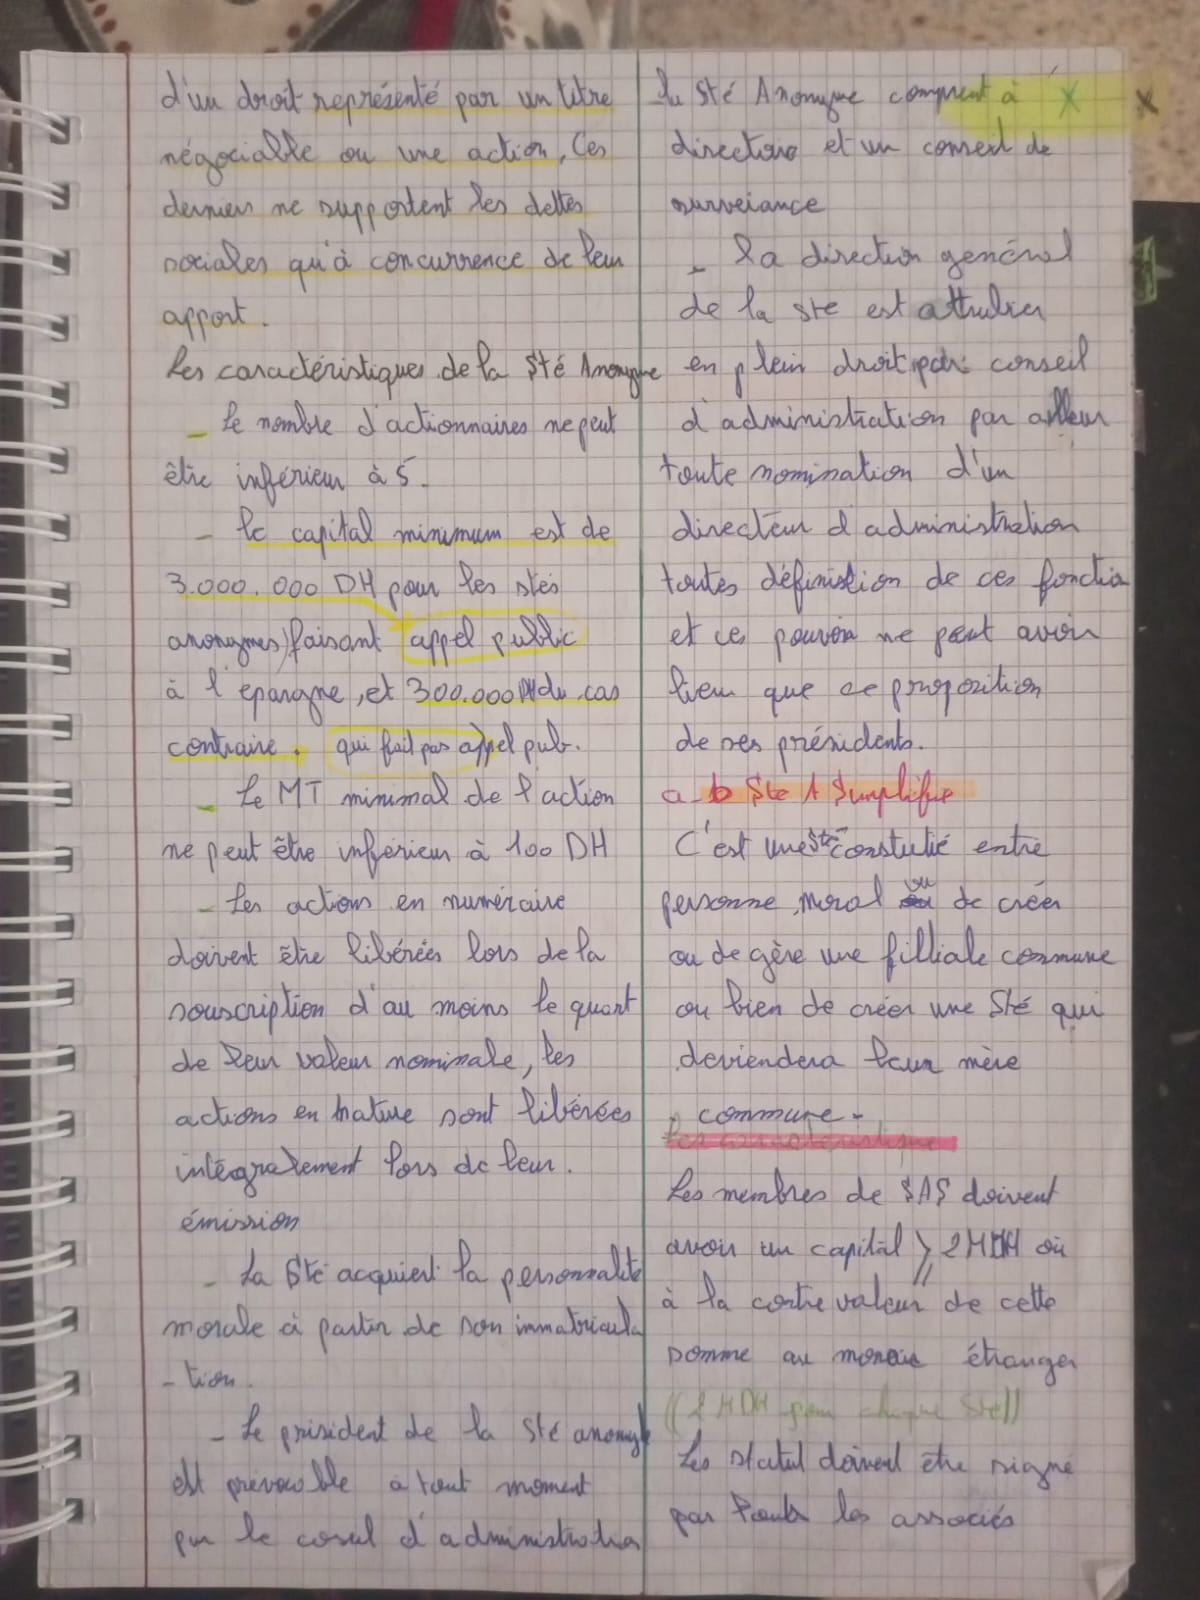 d'un droit représenté par un titre
négociable ou une action, Ces
derniers ne supportent les dettes
sociales qu'à concurrence de leur
apport.
Les caractéristiques de la Sté Anonyme
- Le nombre d'actionnaires ne peut
être inférieur à 5.
- le capital minimum est de
3.000.000 DH pour les stés
anonymes) faisant appel public
à l'épargne, et 300.000 DH du cas
contraire. qui fait pas appel pub.
- Le MT minimal de l'action
ne peut être inférieur à 100 DH
- Les actions en numéraire
doivent être libérées lors de la
souscription d'au moins le quart
de leur valeur nominale, les
actions en nature sont libérées
intégralement lors de leur.
émission
- La Sté acquiert la personnalité
morale à partir de son immatricula
- tion.
- Le président de la Sté anonyme
est prévocable à tout moment
par le cosul d'administration
la Sté Anonyme comprent à
directoire et un conseil de
surveiance
- la direction général
de la ste est attribuer
en plein droit par conseil
d'administration par ailleur
toute nomination d'un
directeur d'administration
toutes définistion de ces fonction
et ces pouvoir ne peut avoir
lieu que ce proposition
de ses présidents.
a-b Ste A Simplifié
C'est une sté constutié entre
personne moral ou de créer
ou de gère une filliale commune
ou bien de créer une Sté qui
deviendera leur mère
commune.
les caractéristique
Les membres de SAS doivent
avoir un capital ⩾ 2 MDH où
à la contre valeur de cette
somme au monaie étranger
((2 MDH pour chaque Sté))
Les statut doivent être signé
par touts les associés